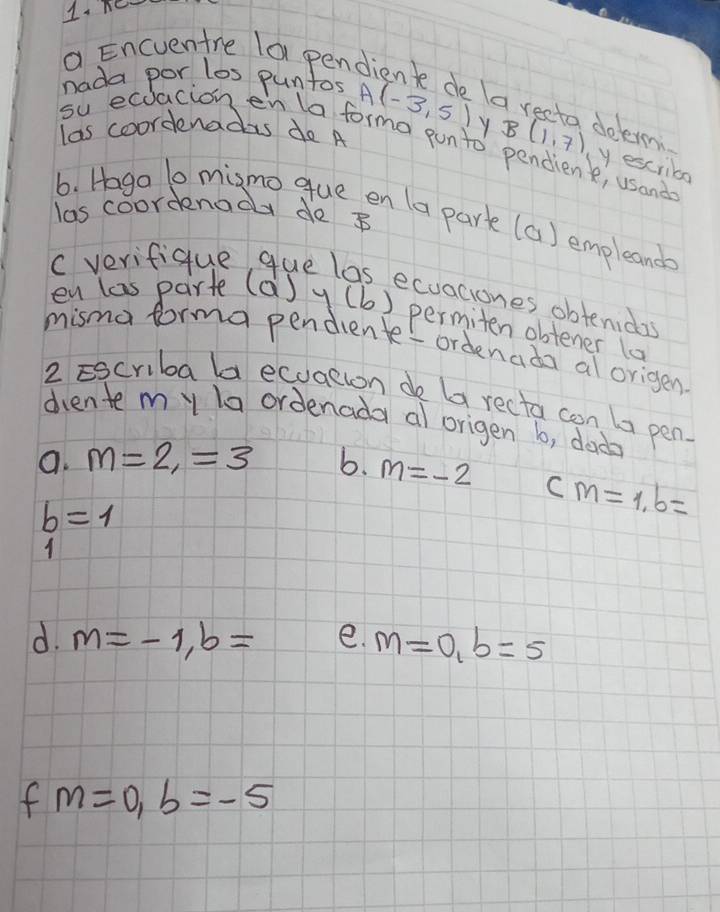 1.
a Encuentre la pendiente de la recta determi-
nada por los puntos A(-3,5) y B(1,7), y escriba
su ecuación en la forma punto pendiente, usando
las coordenadas de A
b. Haga lo mismo que en la parte (a) empleando
las coordenada de B
c verifique que las ecuaciones obtenidas
en las parte (a) y (b) permiten obtener la
misma forma pendiente-ordenada al origen.
2 Escriba la ecuación de la recta con la pen-
diente m y la ordenada al origen b, dada
a. m=2, =3 b. m=-2 c m=1, b=
b=1
1
d. m=-1, b= e. m=0, b=5
f m=0, b=-5